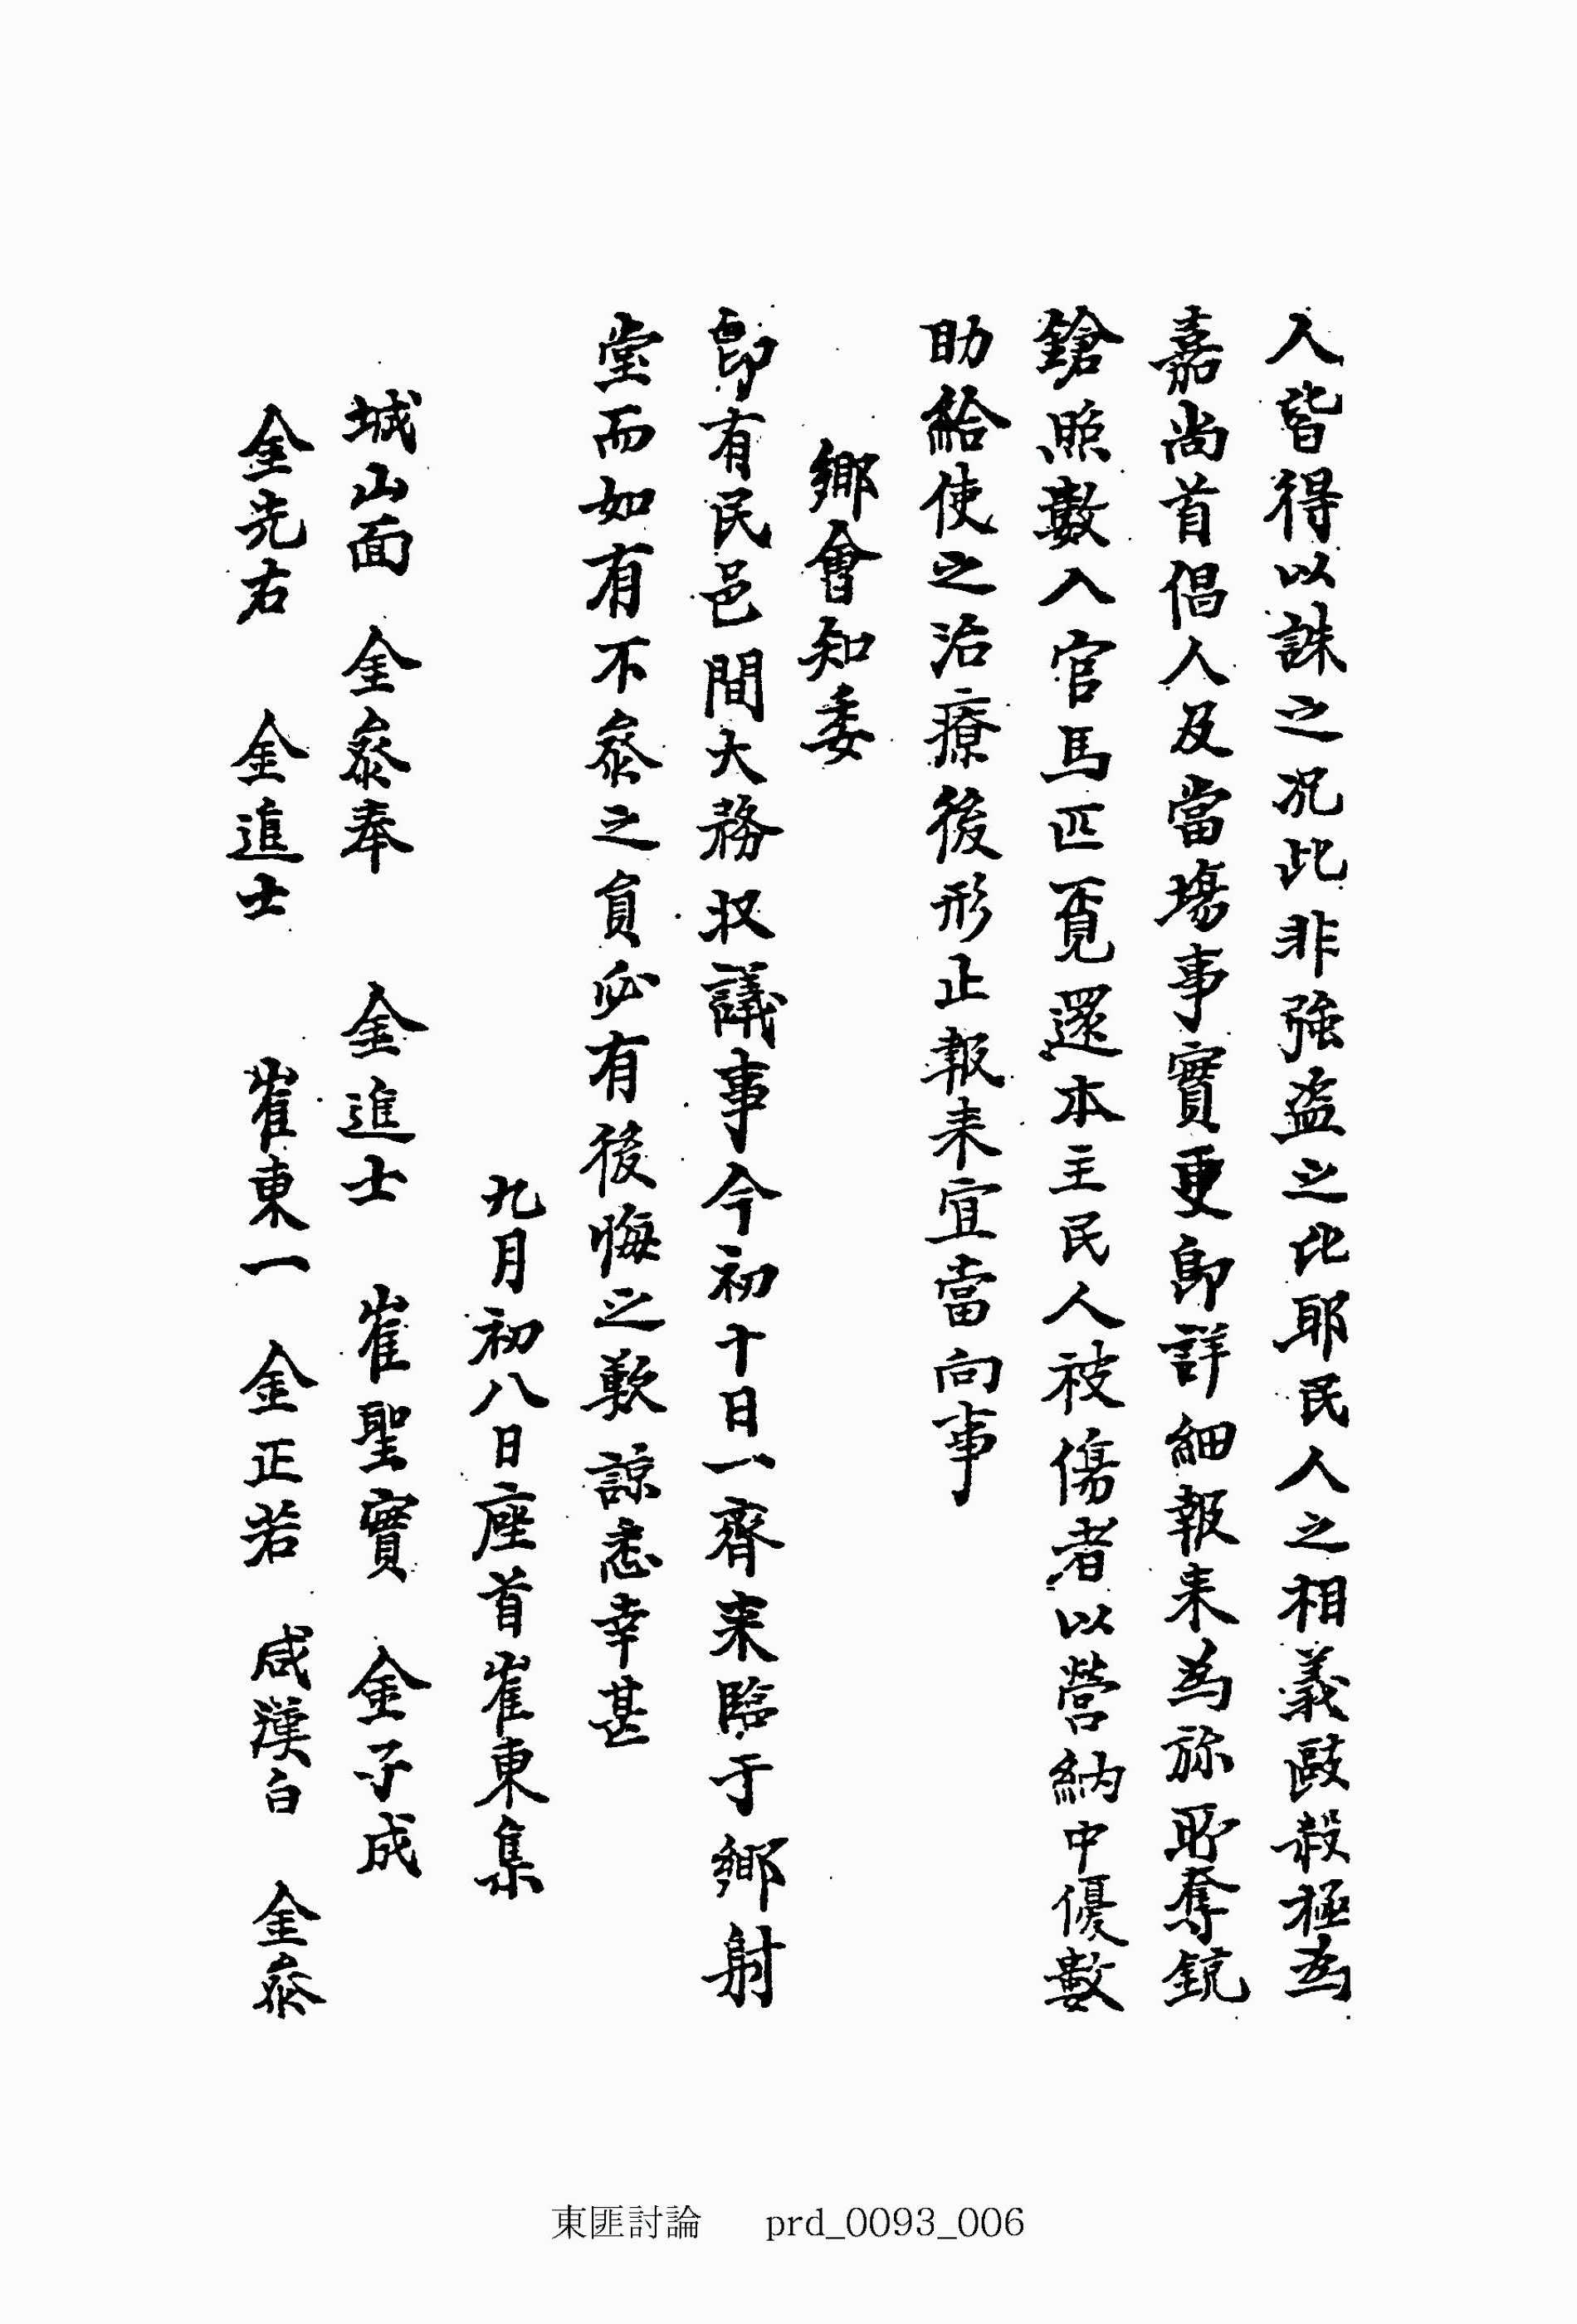 人皆得以誅之况此非強盜之比耶民人之相義敺殺極為
嘉尚首倡人及當塲事實更即詳細報来為旀所奪銃
鎗照數入官馬匹覓還本主民人被傷者以營納中優數
助給使之治療後形止報来宜當向事
鄉會知委
即有民邑間大務收議事今初十日一齊来臨于鄉射
堂而如有不叅之員必有後悔之歎諒悉幸甚
九月初八日座首崔東集
城山面 金叅奉 金進士 崔聖實 金子成
金先右 金進士 崔東一 金正若 咸漢白 金叅
東匪討論 prd_0093_006